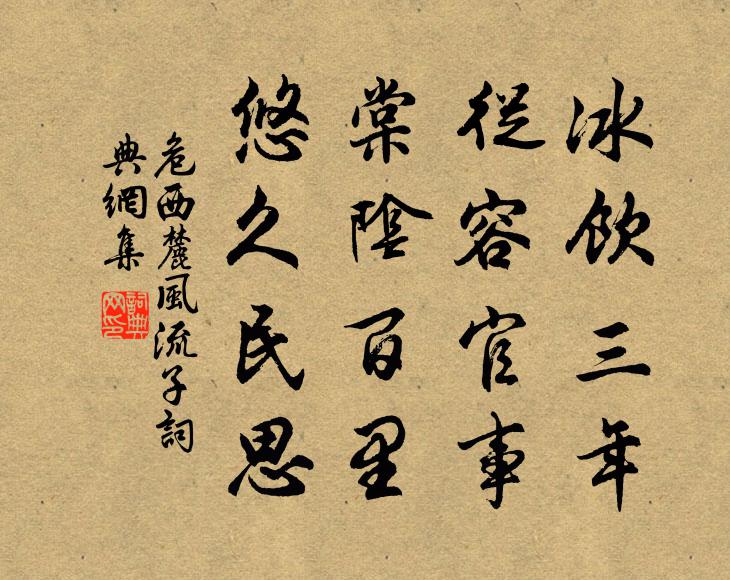 冰飲三年
從容官事
棠陰百里
悠久民思
危西麓風流子詞
典網集
詞典網印